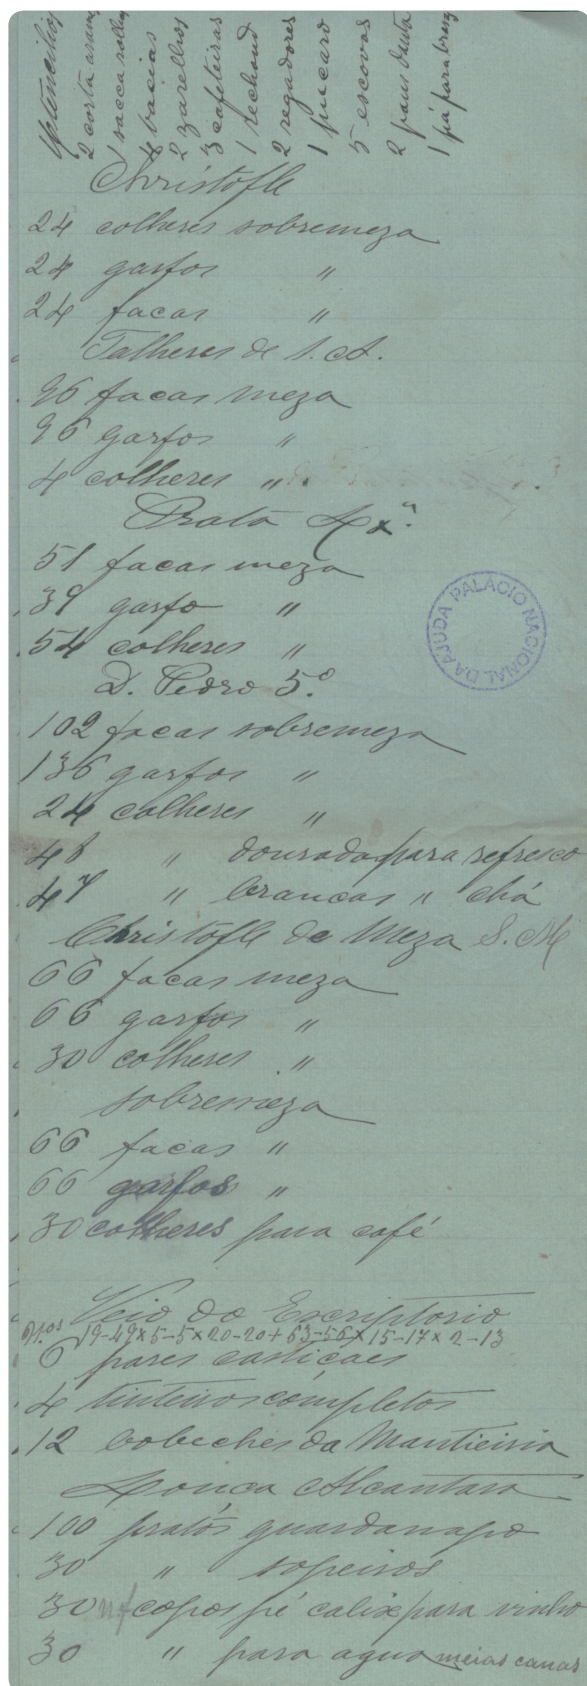 Utencilios
2 corta arame
1 sacca rolhas
4 bacias
2 zarelhos
3 cafeteiras
1 rechaud
2 regadores
1 pucaro
5 escovas
2 paus
1 pá para
Christofle
24 colheres sobremeza
24 garfos "
24 facas "
Talheres de S. A.
96 facas meza
96 garfos "
4 colheres "
Prata
51 facas meza
39 garfo "
54 colheres "
D. Pedro 5.º
102 facas sobremeza
136 garfos "
24 colheres "
48 " douradas para refresco
47 " brancas " chá
Christofle de Meza S. M
66 facas meza
66 garfos "
30 colheres "
sobremeza
66 facas "
66 garfos "
30 colheres para café
Veio do Escriptorio
N.os 19-49 x 5-5 x 20-20 + 63-56 x 15-17 x 2-13
6 pares castiçaes
4 tinteiros completos
12 bobeches da Mantieiria
Louca Alcantara
100 pratos guardanapo
30 " sopeiros
30 copos pé calix para vinho
30 " para agua meias canas
PALÁCIO NACIONAL DA AJUDA